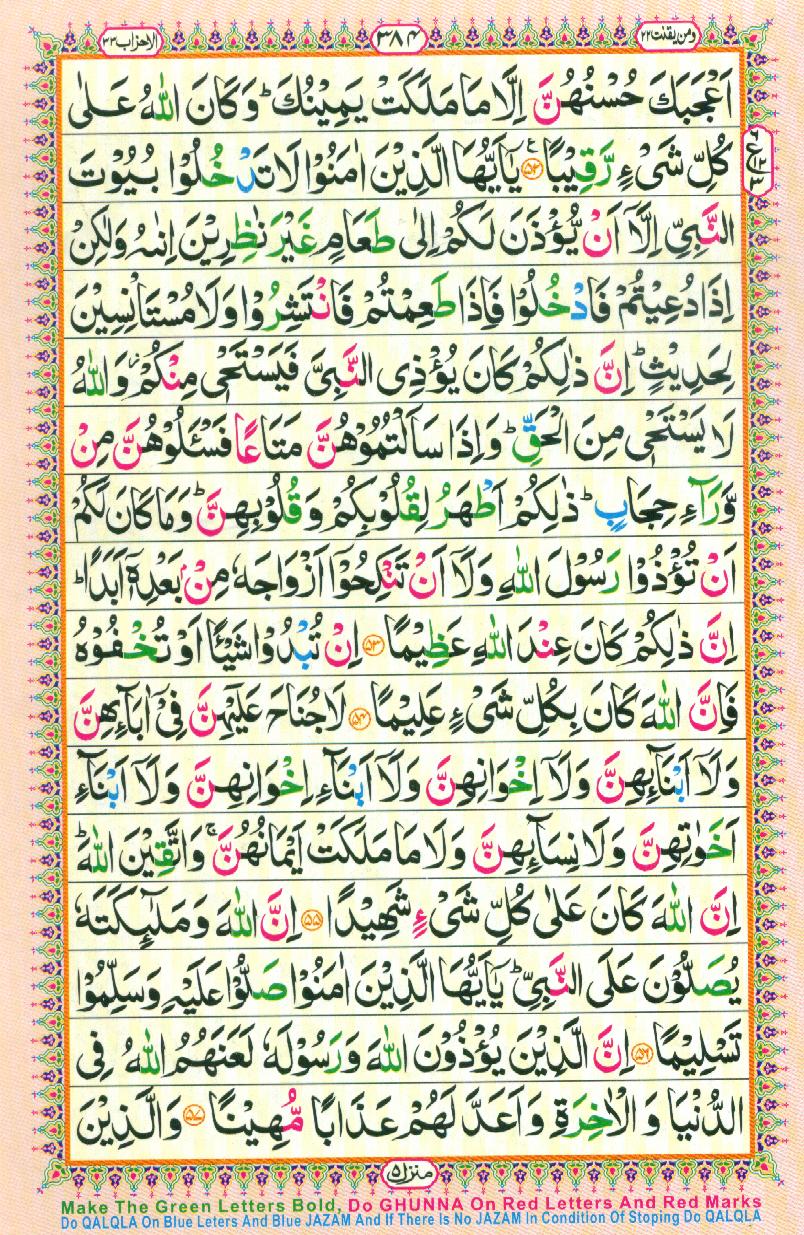 ومن یقنت ٢٢
٣٨٤
الاحزاب ٣٣
اَعْجَبَكَ حُسْنُهُنَّ اِلَّا مَا مَلَكَتْ یَمِیْنُكَ ؕ وَكَانَ اللّٰهُ عَلٰی
كُلِّ شَیْءٍ رَّقِیْبًا ۟۠ ﴿۵۲﴾ یٰۤاَیُّهَا الَّذِیْنَ اٰمَنُوْا لَا تَدْخُلُوْا بُیُوْتَ
النَّبِیِّ اِلَّاۤ اَنْ یُّؤْذَنَ لَكُمْ اِلٰی طَعَامٍ غَیْرَ نٰظِرِیْنَ اِنٰىهُ وَلٰكِنْ
اِذَا دُعِیْتُمْ فَادْخُلُوْا فَاِذَا طَعِمْتُمْ فَانْتَشِرُوْا وَلَا مُسْتَاْنِسِیْنَ
لِحَدِیْثٍ ؕ اِنَّ ذٰلِكُمْ كَانَ یُؤْذِی النَّبِیَّ فَیَسْتَحْیٖ مِنْكُمْ ؗ وَاللّٰهُ
لَا یَسْتَحْیٖ مِنَ الْحَقِّ ؕ وَاِذَا سَاَلْتُمُوْهُنَّ مَتَاعًا فَسْـَٔلُوْهُنَّ مِنْ
وَّرَآءِ حِجَابٍ ؕ ذٰلِكُمْ اَطْهَرُ لِقُلُوْبِكُمْ وَقُلُوْبِهِنَّ ؕ وَمَا كَانَ لَكُمْ
اَنْ تُؤْذُوْا رَسُوْلَ اللّٰهِ وَلَاۤ اَنْ تَنْكِحُوْۤا اَزْوَاجَهٗ مِنْۢ بَعْدِهٖۤ اَبَدًا ؕ
اِنَّ ذٰلِكُمْ كَانَ عِنْدَ اللّٰهِ عَظِیْمًا ﴿۵۳﴾ اِنْ تُبْدُوْا شَیْـًٔا اَوْ تُخْفُوْهُ
فَاِنَّ اللّٰهَ كَانَ بِكُلِّ شَیْءٍ عَلِیْمًا ﴿۵۴﴾ لَا جُنَاحَ عَلَیْهِنَّ فِیْۤ اٰبَآىِٕهِنَّ
وَلَاۤ اَبْنَآىِٕهِنَّ وَلَاۤ اِخْوَانِهِنَّ وَلَاۤ اَبْنَآءِ اِخْوَانِهِنَّ وَلَاۤ اَبْنَآءِ
اَخَوٰتِهِنَّ وَلَا نِسَآىِٕهِنَّ وَلَا مَا مَلَكَتْ اَیْمَانُهُنَّ ۚ وَاتَّقِیْنَ اللّٰهَ ؕ
اِنَّ اللّٰهَ كَانَ عَلٰی كُلِّ شَیْءٍ شَهِیْدًا ﴿۵۵﴾ اِنَّ اللّٰهَ وَمَلٰٓىِٕكَتَهٗ
یُصَلُّوْنَ عَلَی النَّبِیِّ ؕ یٰۤاَیُّهَا الَّذِیْنَ اٰمَنُوْا صَلُّوْا عَلَیْهِ وَسَلِّمُوْا
تَسْلِیْمًا ﴿۵۶﴾ اِنَّ الَّذِیْنَ یُؤْذُوْنَ اللّٰهَ وَرَسُوْلَهٗ لَعَنَهُمُ اللّٰهُ فِی
الدُّنْیَا وَالْاٰخِرَةِ وَاَعَدَّ لَهُمْ عَذَابًا مُّهِیْنًا ﴿۵۷﴾ وَالَّذِیْنَ
منزل ۵
Make The Green Letters Bold, Do GHUNNA On Red Letters And Red Marks
Do QALQLA On Blue Leters And Blue JAZAM And If There Is No JAZAM In Condition Of Stoping Do QALQLA